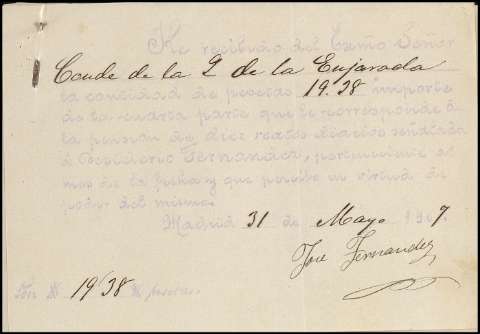 He recibido del Excmo Señor
Conde de la Q de la Enjarada
la cantidad de pesetas 19.38 importe
de la cuarta parte que le corresponde á
la pensión de diez reales diarios señalada
á Fernandez, perteneciente al
mes de la fecha y que percibo en virtud de
poder del mismo.
Madrid 31 de Mayo 1907
José Fernandez
Son # 19'38 # pesetas.